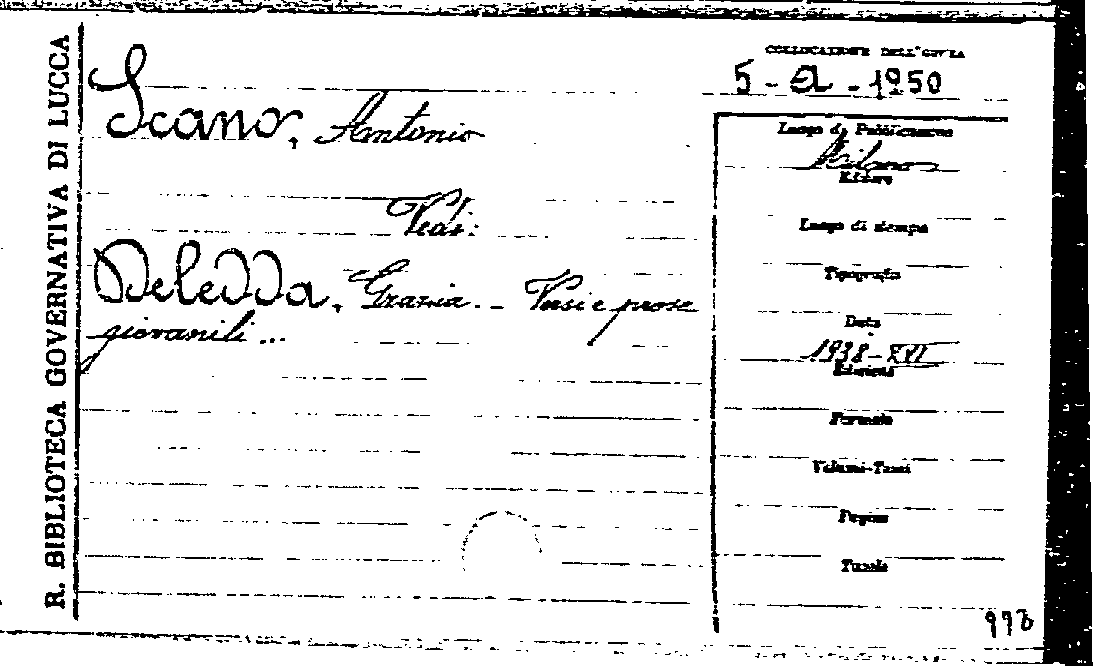 R. BIBLIOTECA GOVERNATIVA DI LUCCA
COLLOCAZIONE DELL'OPERA
5 - a - 1950
Scano, Antonio
Vedi:
Deledda, Grazia. - Versi e prose
giovanili...
Luogo di Pubblicazione
Milano
Editore
Luogo di stampa
Tipografia
Data
1938-XVI
Edizione
Formato
Volumi-Tomi
Pagine
Tavole